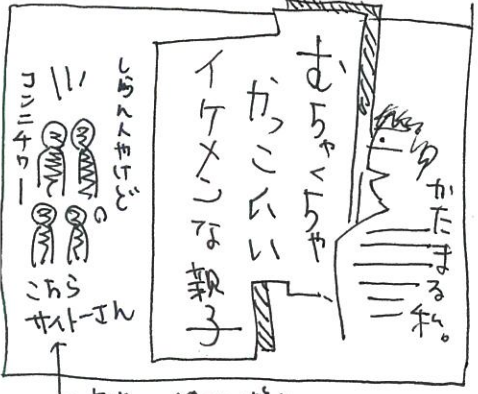 かたまる私。
むちゃくちゃ
かっこいい
イケメンな親子
しらん人やけど
コンニチワー
こちら
サイトーさん